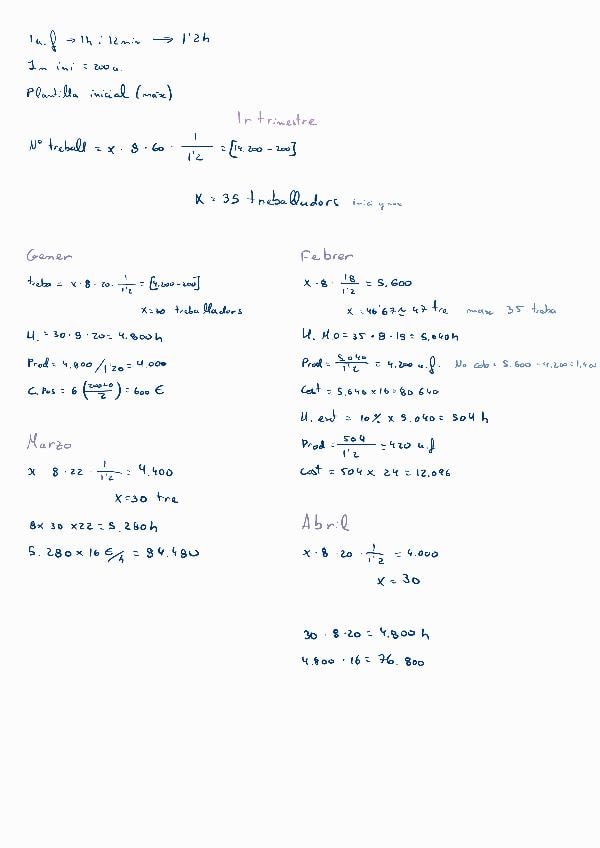 1 u.f → 1h i 12min → 1'2h
In ini = 200 u.
Plantilla inicial (max)
1r trimestre
Nº treball = x · 8 · 60 · 1/1'2 = [14.200 - 200]
X = 35 treballadors
Gener
treba = x · 8 · 20 · 1/1'2 = [4.200-200]
X=30 treballadors
H. = 30 · 8 · 20 = 4.800h
Prod = 4.800/1'20 = 4.000
C. Pos = 6 (200+0/2) = 600 €
Marzo
x 8 · 22 · 1/1'2 = 4.400
X=30 tre
8x 30 x22 = 5.280h
5.280 x 16 €/h = 84.480
Febrer
x · 8 · 18/1'2 = 5.600
x = 46'67 ≈ 47 tre max 35 treba
H. MO = 35 · 8 · 18 = 5.040h
Prod = 5.040/1'2 = 4.200 u.f. No cob = 5.600 - 4.200 = 1.400
Cost = 5.040 x 16 = 80 640
H. ext = 10% x 5.040 = 504 h
Prod = 504/1'2 = 420 u.f
Cost = 504 x 24 = 12.096
Abril
x · 8 · 20 · 1/1'2 = 4.000
x = 30
30 · 8 · 20 = 4.800 h
4.800 · 16 = 76.800